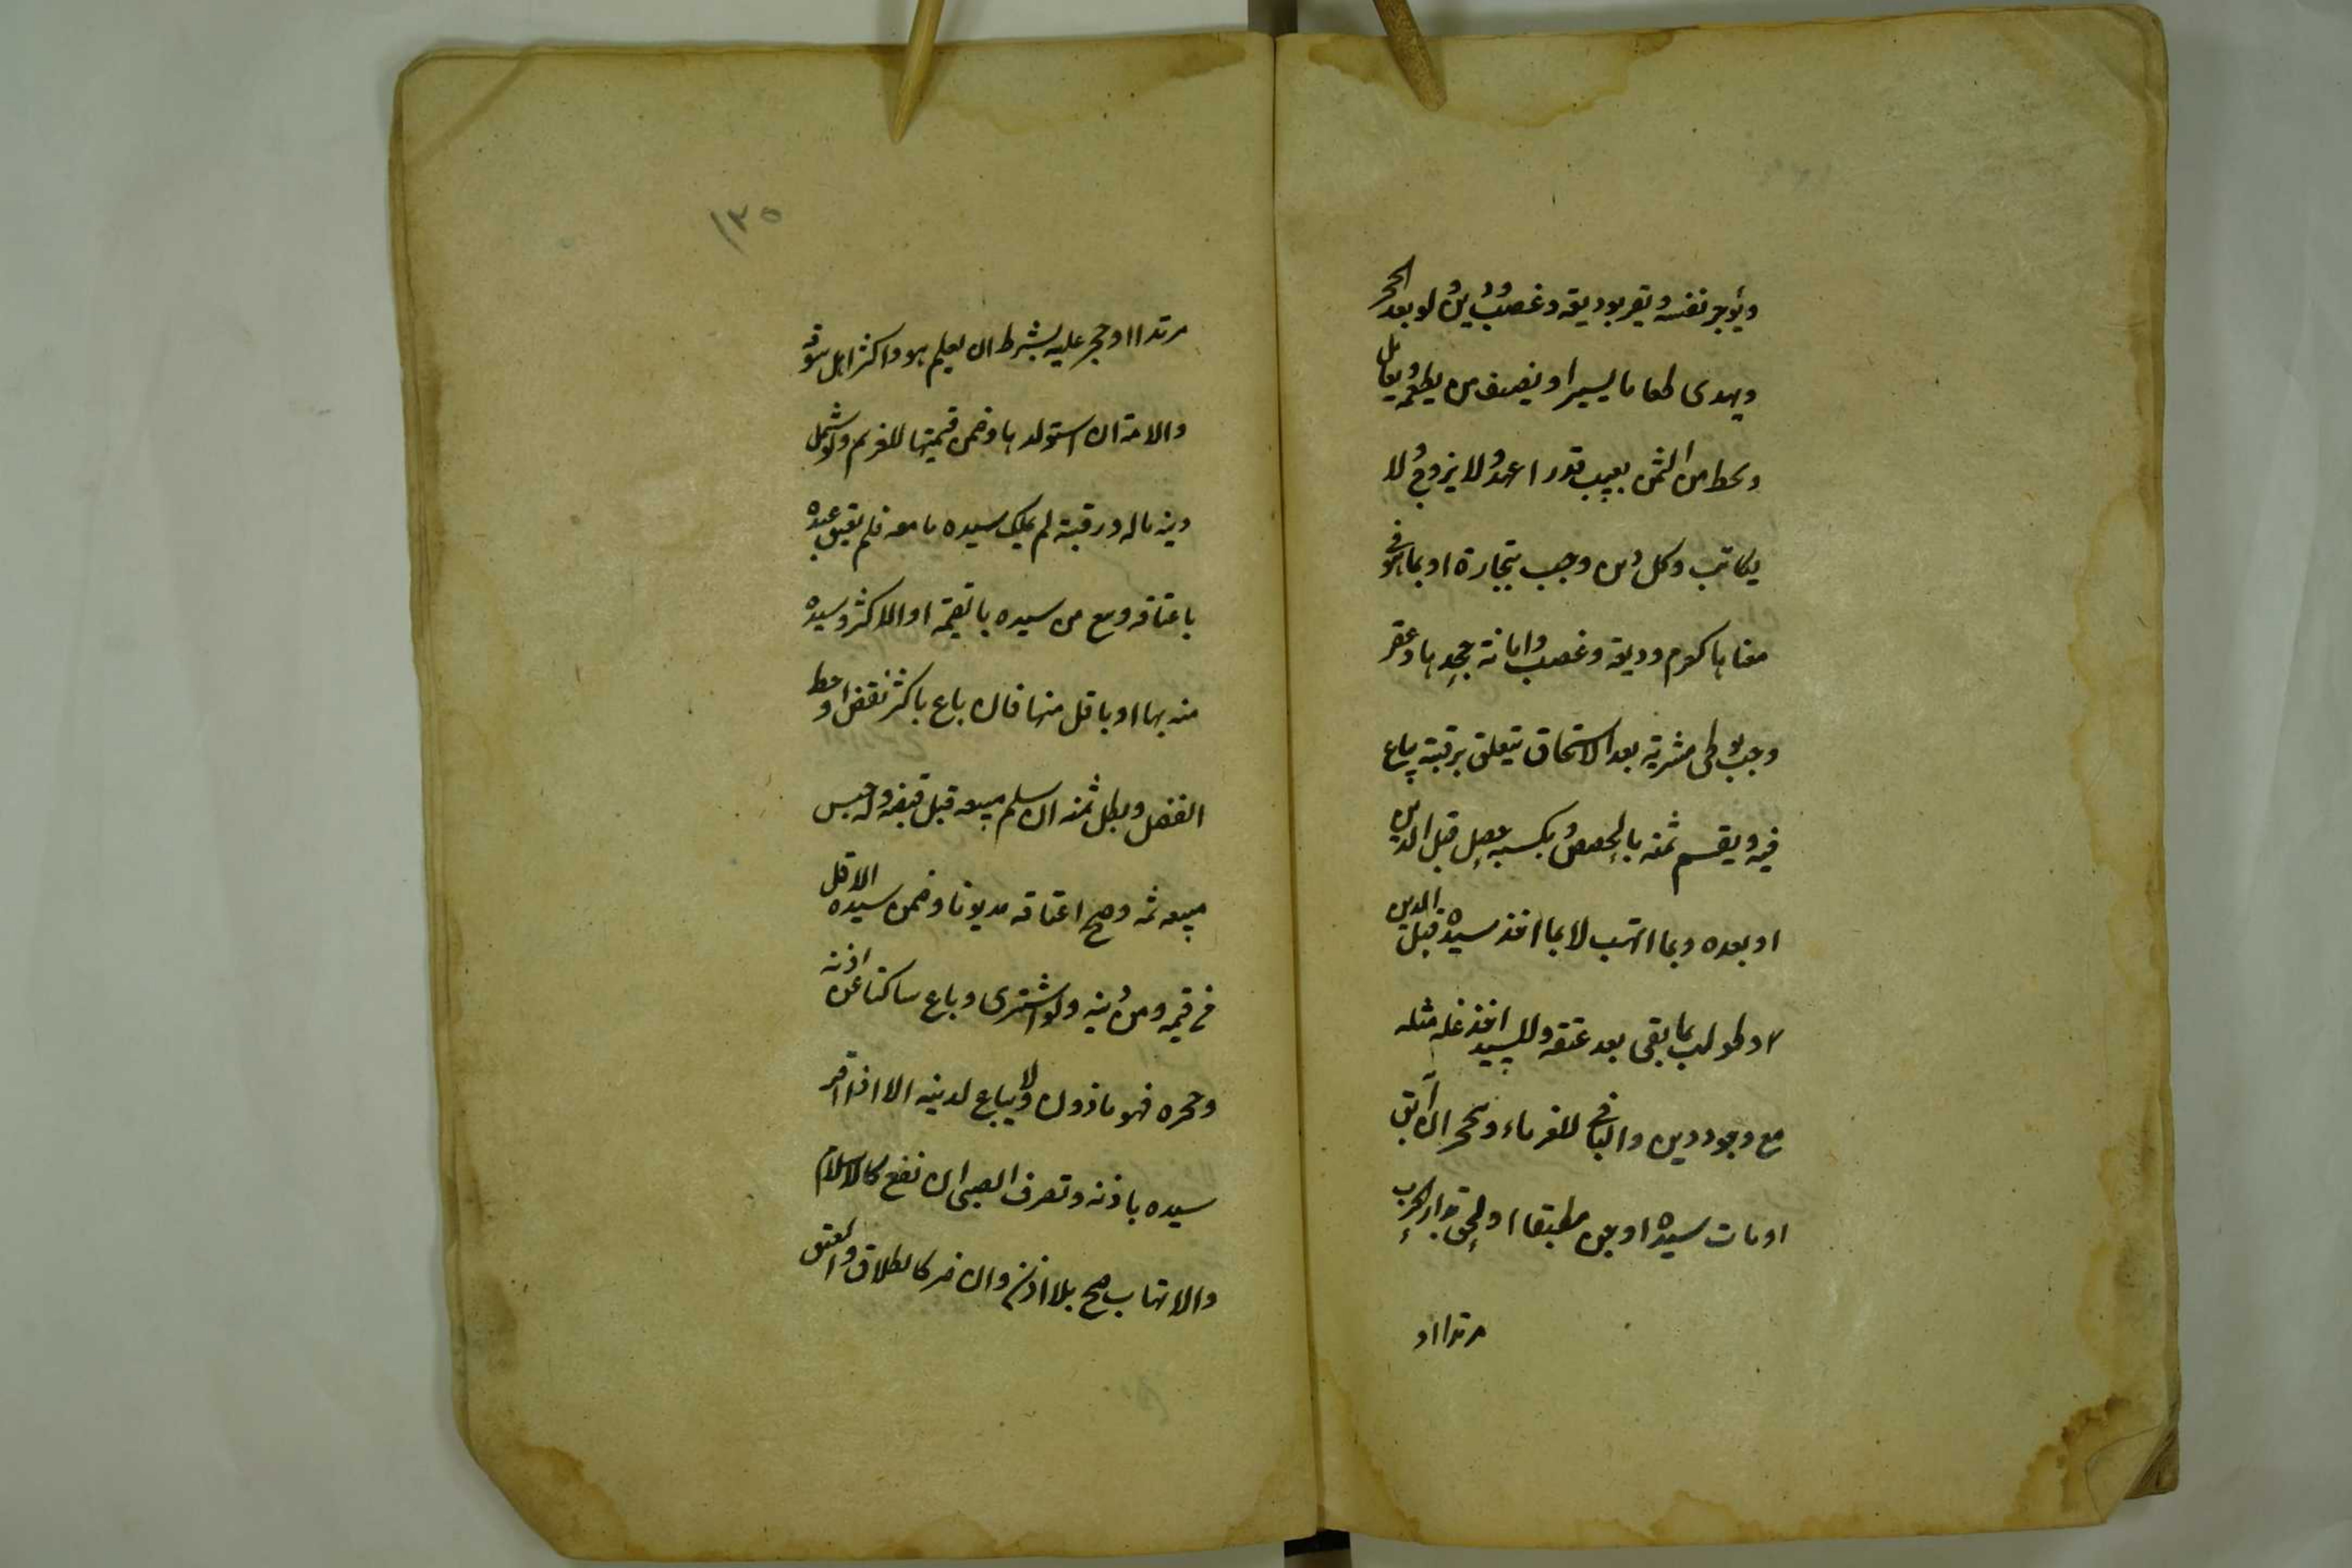 ويؤجر نفسه ويقر بوديعة وغصب ودين ولو بعد الحجر
ويهدى طعاما يسيرا ويضيف من يطعمه ويعامل
ويحط من الثمن بعيب قدرا عهد ولا يزوج ولا
يكاتب وكل دين وجب بتجارة او بما هو فى
معناها كغرم وديعة وغصب وامانة جحدها وعقر
وجب بوطى مشرية بعد الاستحقاق يتعلق برقبته يباع
فيه ويقسم ثمنه بالحصص وبكسبه حصل قبل الدين
او بعده وبما اتهب لا بما اخذ سيده قبل الدين
وطولب بما بقى بعد عتقه وللسيد اخذ غلة مثله
مع وجود دين والباقى للغرماء ويحجر ان آبق
او مات سيده او جن مطبقا او لحق بدار الحرب
مرتدا او
١٣٥
مرتدا او حجر عليه بشرط ان يعلم هو واكثر اهل سوقه
والامة ان استولدها وضمن قيمتها للغرم ولو شمل
دينه ماله ورقبته لم يملك سيده ما معه فلم يعتق عبده
باعتاقه وبيع من سيده بالقيمة او الاكثر وسيده
منه بها او باقل منها فان باع باكثر نقض او حط
الفضل وبطل ثمنه ان سلم مبيعه قبل قبضه وله حبس
مبيعه ثمه وصح اعتاقه مديونا وضمن سيده الاقل
فى قيمه ومن دينه ولو اشترى وباع ساكتا عن اذنه
وحجره فهو ماذون ولا يباع لدينه الا اذا اقر
سيده باذنه وتصرف الصبى ان نفع كالاسلام
والاتهاب صح بلا اذن وان ضر كالطلاق والعتق